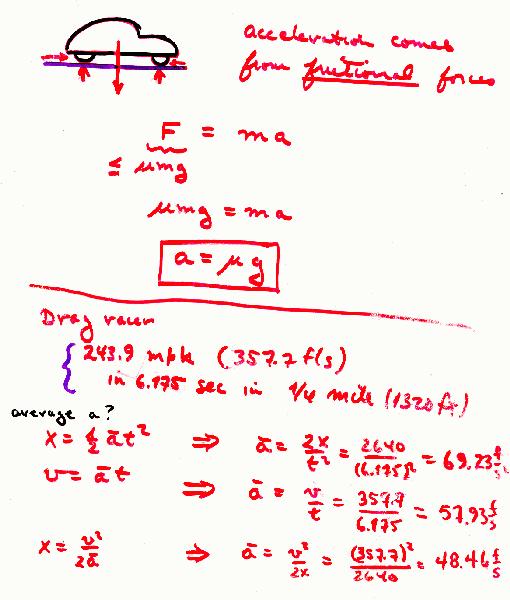 acceleration comes
from frictional forces
F = ma
≤ μmg
μmg = ma
a = μg
Drag racer
243.9 mph (357.7 f/s)
in 6.175 sec in 1/4 mile (1320 ft)
average a?
x = 1/2 āt² ⇒ ā = 2x/t² = 2640/(6.175)² = 69.23 f/s
v = āt ⇒ ā = v/t = 357.7/6.175 = 57.93 f/s
x = v²/2ā ⇒ ā = v²/2x = (357.7)²/2640 = 48.46 f/s